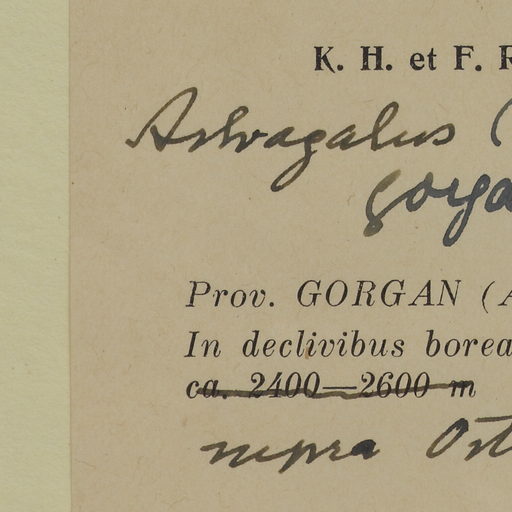 K. H. et F. R
Astragalus (
gorga
Prov. GORGAN (A
In declivibus borea
ca. 2400—2600 m
supra Ost